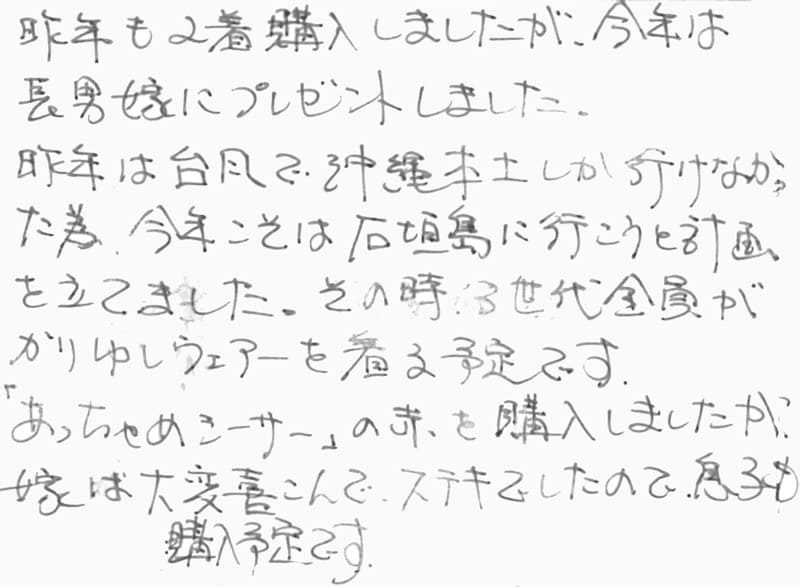 昨年も2着購入しましたが、今年は
長男嫁にプレゼントしました。
昨年は台風で沖縄本土しか行けなかっ
た為、今年こそは石垣島に行こうと計画
を立てました。その時、3世代全員が
かりゆしウェアーを着る予定です。
「あっちゃめシーサー」の赤を購入しましたが、
嫁は大変喜こんで、ステキでしたので、息子も
購入予定です。